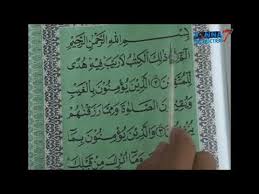 بِسْمِ اللَّهِ الرَّحْمَٰنِ الرَّحِيمِ
الٓمٓ ذَٰلِكَ الْكِتَٰبُ لَا رَيْبَ فِيهِ هُدًى
لِلْمُتَّقِينَ ٢ الَّذِينَ يُؤْمِنُونَ بِالْغَيْبِ
وَيُقِيمُونَ الصَّلَوٰةَ وَمِمَّا رَزَقْنَٰهُمْ
يُنْفِقُونَ ٣ وَالَّذِينَ يُؤْمِنُونَ بِمَا
وَمَا أُنْزِلَ مِنْ قَبْلِكَ